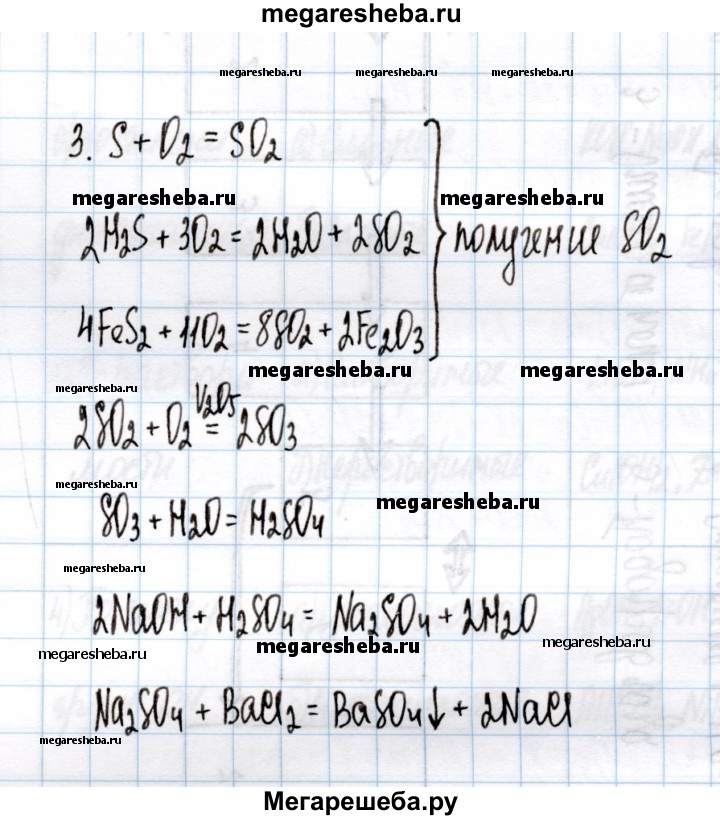 megaresheba.ru
megaresheba.ru megaresheba.ru megaresheba.ru
3. S + O₂ = SO₂
megaresheba.ru megaresheba.ru
2H₂S + 3O₂ = 2H₂O + 2SO₂ } получение SO₂
4FeS₂ + 11O₂ = 8SO₂ + 2Fe₂O₃
megaresheba.ru megaresheba.ru
megaresheba.ru
V₂O₅
2SO₂ + O₂ = 2SO₃
megaresheba.ru
megaresheba.ru
SO₃ + H₂O = H₂SO₄
megaresheba.ru
2NaOH + H₂SO₄ = Na₂SO₄ + 2H₂O
megaresheba.ru megaresheba.ru megaresheba.ru
Na₂SO₄ + BaCl₂ = BaSO₄↓ + 2NaCl
megaresheba.ru
Мегарешеба.ру